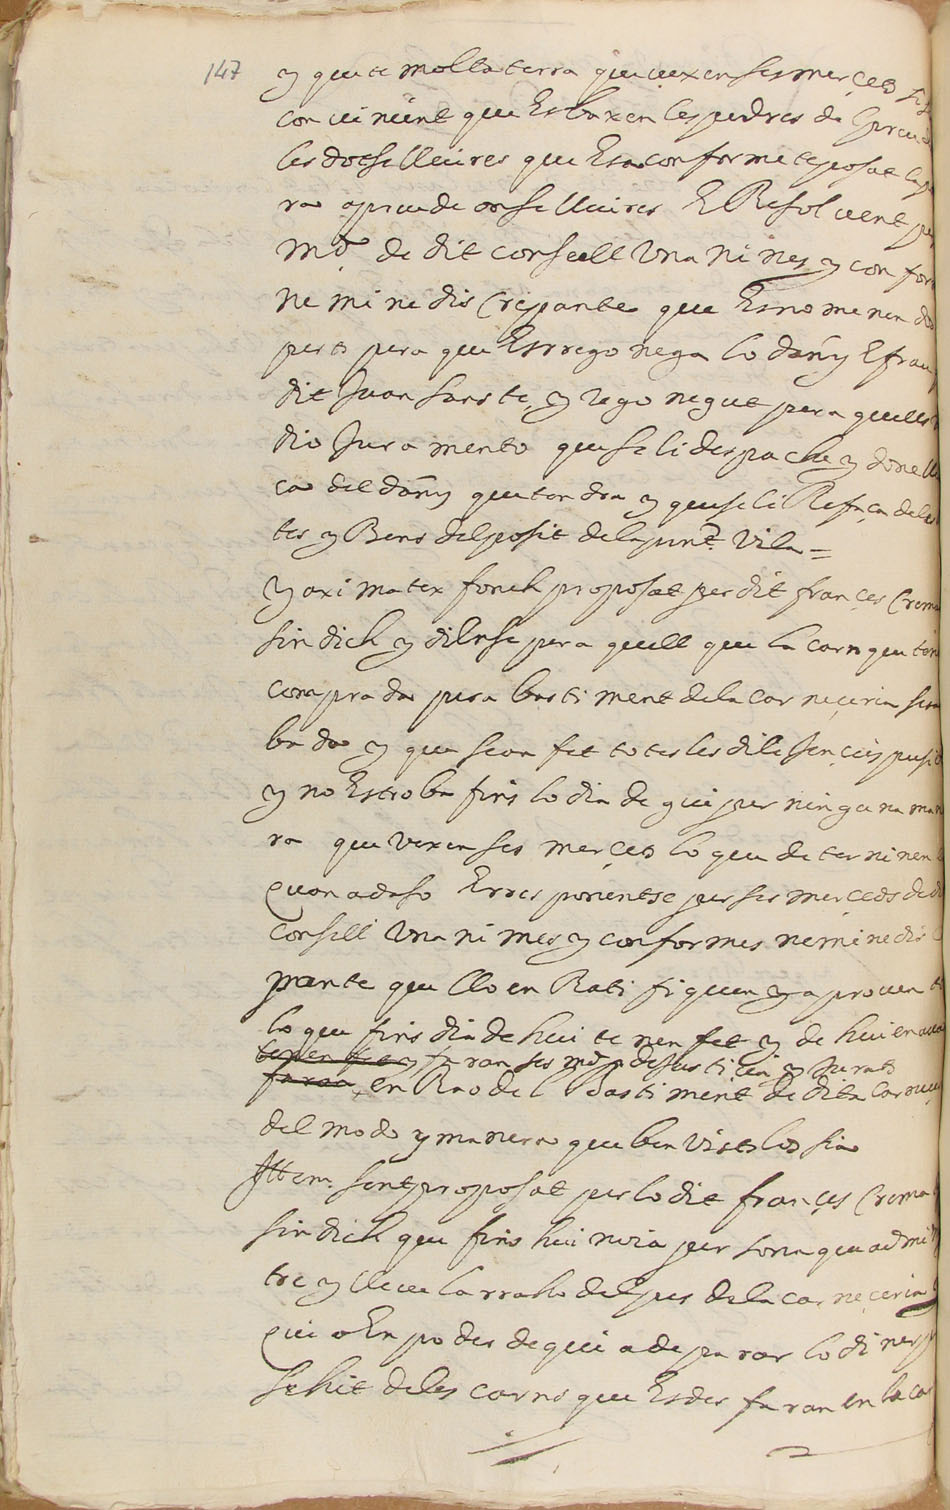 147
y que te molta terra que vexen ses merçeds si
convinent que Es baxen les pedres de
les dotse lliures que Esta conforme te posat
ra a preu de onse lliures E Resolvent per
md de dit consell Unanimes y confor
nemine discrepante que Es nomenen
perts pera que Es regonega lo dany E
dit Juan Sans te y regonegut pera que
dio Jurament que se li despache y done
ca del dany que tendra y que se li Refaça de les
tes y Bens del posit de la pnt Vila =
Y axi matex fonch proposat per dit françes Crema
sindich y dihuse pera quell que la carn que
comprada pera bastiment de la carneçeria
bada y que sean fet totes les diligençies
y no Es troba fins lo dia de gui per ninguna mane
ra que vexen ses merçeds lo que determinen
quon adaso E responentse per ses merçeds de
consell Unanimes y conformes nemine dis
pante que lloen Ratifiquen y aproven
lo que fins dia de hui tenen fet y de hui en
tenen fet y faran ses mds de Justiçia y Jurats
faran en Rao del Bastiment de dita
del modo y manera que ben vists los sia
Ittem sent proposat per lo dit françes Crema
sindich que fins hui no ia persona que admi
tre y lleve la raho del pes de la carneçeria
qui o En poder de qui a de parar lo diner
sehit deles carns que Es des faran en la car